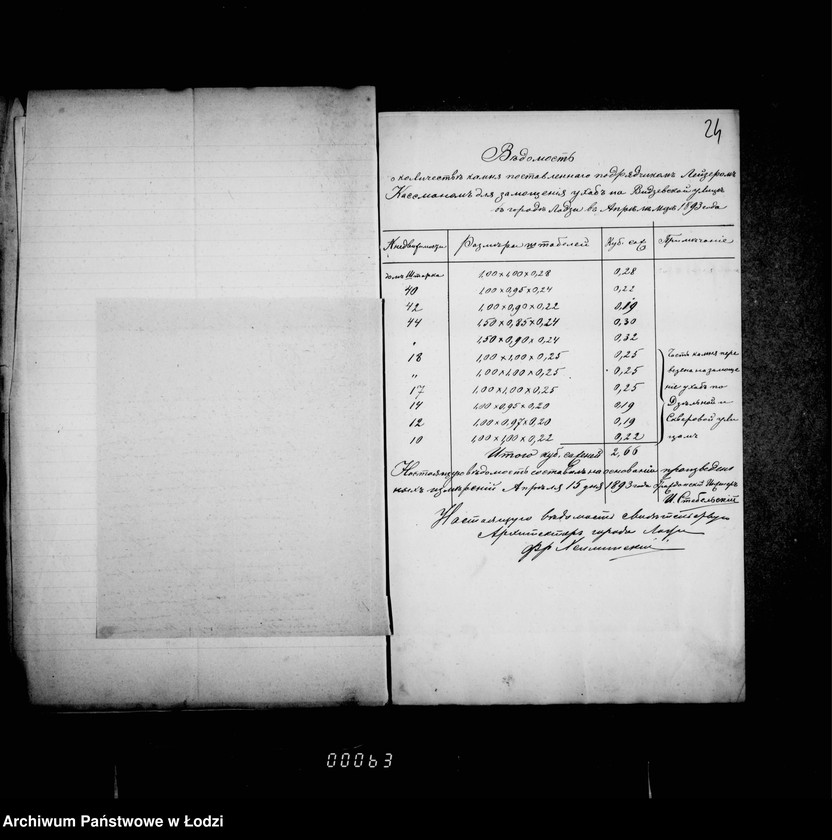 24
Вѣдомость
о количествѣ камня поставленнаго подрядчикомъ Лейзеромъ
Кассманомъ для замощенія ухабъ на Видзевской улицѣ
въ городѣ Лодзи въ Апрѣлѣ мцѣ 1893 года
Размѣры штабелей Куб. саж. Примѣчаніе
домъ Штарка 1,00 × 1,00 × 0,28 0,28
40 1,00 × 0,95 × 0,24 0,22
42 1,00 × 0,90 × 0,22 0,19
44 1,50 × 0,85 × 0,24 0,30
" 1,50 × 0,90 × 0,24 0,32
18 1,00 × 1,00 × 0,25 0,25 Часть камня пере
" 1,00 × 1,00 × 0,25 0,25 везена на замоще
17 1,00 × 1,00 × 0,25 0,25 ніе ухабъ по
14 1,00 × 0,95 × 0,20 0,19 Дзѣльной и
12 1,00 × 0,97 × 0,20 0,19 Сѣверовой ули
10 1,00 × 1,00 × 0,22 0,22 цамъ
Итого куб. саженей 2,66
Настоящую вѣдомость составилъ на основаніи произведен
ныхъ измѣреній Апрѣля 15 дня 1893 года
И. Стебельскій
Настоящую вѣдомость свидѣтельствую
Архитекторъ города Лодзи
00063
Archiwum Państwowe w Łodzi